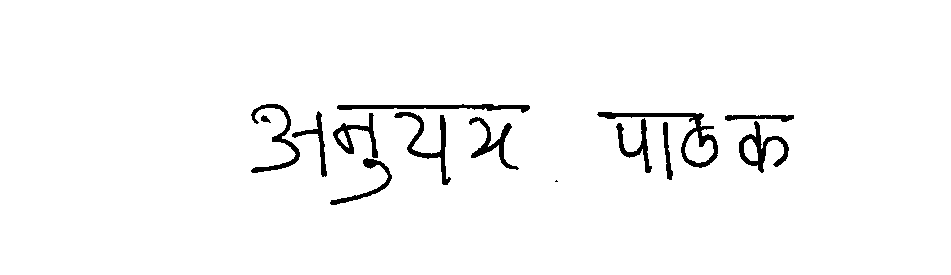 अनुयय पाठक